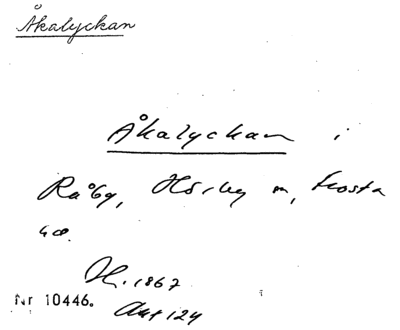 Åkalyckan
Åkalyckan i
Råby, Hörby s, Frosta
hd.
H. 1867
Akt 124
Nr 10446.